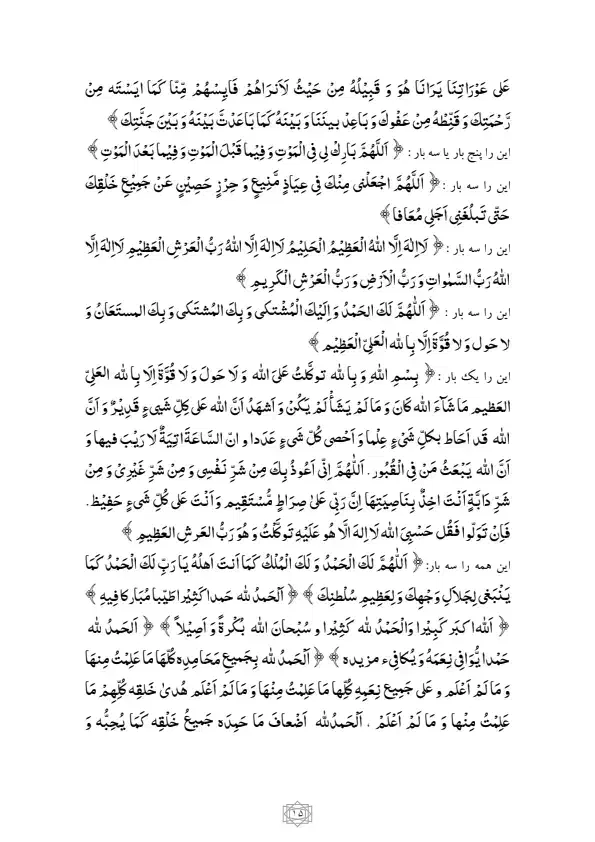 عَلٰی عَوْرَاتِنَا يَرَانَا هُوَ وَ قَبِيْلُهُ مِنْ حَيْثُ لَانَرَاهُمْ فَايِسْهُمْ مِنَّا كَمَا ايَسْتَه مِنْ
رَّحْمَتِكَ وَ قَنِّطْهُ مِنْ عَفْوِكَ وَ بَاعِدْ بينَنَا وَ بَيْنَهُ كَمَا بَاعَدْتَّ بَيْنَهُ وَ بَيْنَ جَنَّتِكَ ﴾
این را پنج بار یا سه بار : ﴿ اَللّٰهُمَّ بَارِكْ لِی فِی الْمَوْتِ وَ فِيما قَبْلَ الْمَوْتِ وَ فِيما بَعْدَ الْمَوْتِ ﴾
این را سه بار :﴿ اَللّٰهُمَّ اجْعَلْنی مِنْكَ فِی عِيَاذٍ مَّنِيعٍ وَ حِرْزٍ حَصِيْنٍ عَنْ جَمِيْعِ خَلْقِكَ
حَتّٰی تَبلُغَنِی اَجَلِی مُعَافا ﴾
این را سه بار :﴿ لَااِلٰهَ اِلَّا اللهُ الْعَظِيْمُ الْحَلِيْمُ لَااِلٰهَ اِلَّا اللهُ رَبُّ الْعَرْشِ الْعَظِيْمِ لَااِلٰهَ اِلَّا
اللهُ رَبُّ السَّمٰواتِ وَ رَبُّ الْاَرْضِ وَ رَبُّ الْعَرْشِ الْكَرِيمِ ﴾
این را سه بار : ﴿ اَللّٰهُمَّ لَكَ الحَمْدُ وَ اِلَيْكَ الْمُشْتكی وَ بِكَ المُشتَكی وَ بِكَ المستَعَانُ وَ
لا حَول وَ لا قُوَّةَ اِلَّا بِالله الْعَلِیِّ الْعَظِيْم ﴾
این را یک بار :﴿ بِسْمِ اللهِ وَ بِالله توكَّلتُ عَلیَ الله وَ لَا حَولَ وَ لَا قُوَّةَ اِلَا بِالله العَلِیِّ
العَظيمِ مَا شَآءَ الله كَانَ وَ مَا لَمْ يَشَأْ لَمْ يَكُنْ وَ اَشهَدُ اَنَّ الله عَلی كلِّ شَیءٍ قَدِيْرٌ وَ اَنَّ
الله قد اَحَاط بكلِّ شَیْءٍ عِلْما وَ اَحْصی كُلَّ شَیءٍ عَدَدا و انّ السَّاعةَ اتِيَةٌ لَا رَيْبَ فيها وَ
اَنَّ الله يَبْعَثُ مَنْ فِی الْقُبُور . اَللّٰهُمَّ اِنِّی اَعُوذُ بِكَ مِنْ شَرِّ نَفْسِی وَ مِنْ شَرِّ غَيْرِیْ وَ مِنْ
شَرِّ دَابَّةٍ اَنْتَ اخِذٌ بِنَاصِيَتِهَا اِنَّ رَبِّی عَلیٰ صِرَاطٍ مُّسْتَقِيمٍ وَ اَنْتَ عَلی كُلِّ شَیءٍ حَفِيْظ .
فَاِنْ تَوَلَّوا فَقُل حَسْبِیَ الله لَا اِلهَ الَّا هُو عَلَيْهِ تَوَكَّلْتُ وَ هُوَ رَبُّ العَرشِ العَظِيمِ ﴾
این همه را سه بار:﴿ اَللّٰهُمَّ لَكَ الْحَمْدُ وَ لَكَ الْمُلْكُ كَمَا اَنتَ اَهلُهُ يَا رَبِّ لَكَ الْحَمْدُ كَمَا
يَنْبَغِی لِجَلَالِ وَجْهِكَ وَ لِعَظِيمِ سُلْطنِكَ ﴾ ﴿ اَلْحَمْدُ لله حَمدا كَثِيْرا طَيِّبا مُبَاركا فِيهِ ﴾
﴿ اَلله اكبَر كَبِيْرا وَالْحَمْدُ لله كَثِيْرا و سُبْحَانَ الله بُكْرةً وَ اَصِيْلاً ﴾ ﴿ اَلحَمدُ لله
حَمْدا يُّوَافِی نِعَمَهُ وَ يُكَافِیء مزيده ﴾ ﴿ اَلْحَمدُ لله بِجَميعِ مَحَامِدِه كُلِّهَا مَا عَلِمْتُ مِنهَا
وَ مَا لَمْ اَعْلَم و عَلی جَمِيعِ نِعَمِهِ كُلِّها مَا عَلِمْتُ مِنْهَا وَ مَا لَمْ اَعْلَم هُدیٰ خَلقِه كُلِّهِمْ مَا
عَلِمْتُ مِنْها وَ مَا لَمْ اَعْلَمْ . اَلْحَمدُلله اَضْعَافَ مَا حَمِدَه جَمِيعُ خَلْقِه كَمَا يُحِبُّه وَ
۱۵